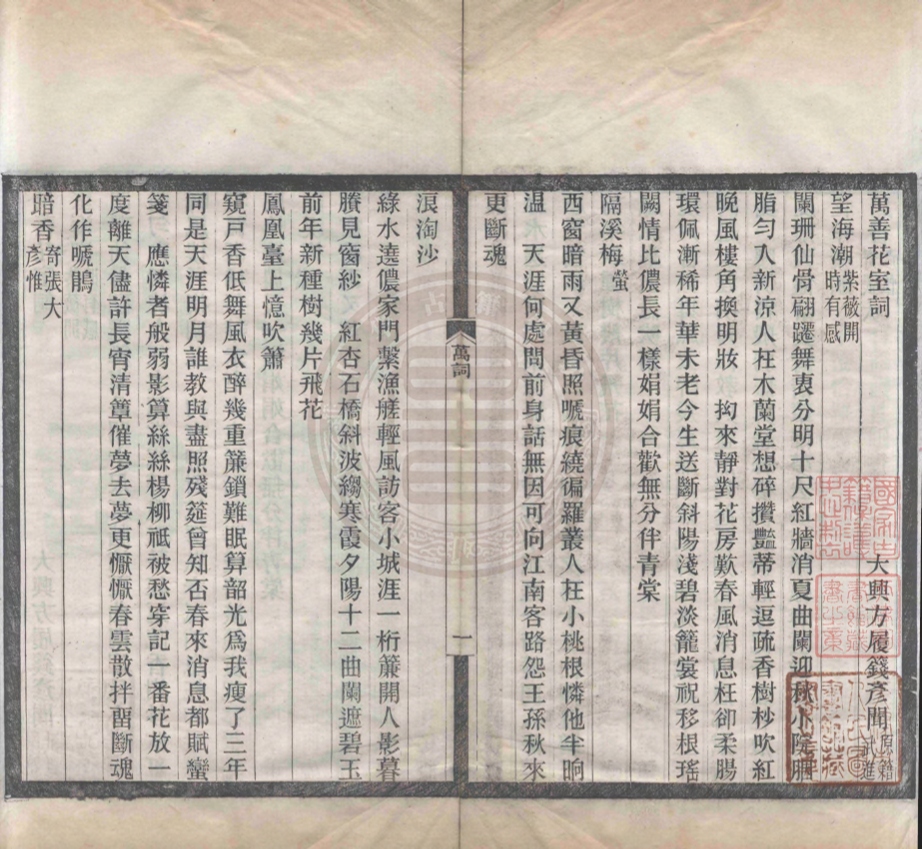 萬善花室詞　大興方履籛彥聞原籍武進
望海潮紫薇開時有感
闌珊仙骨翩躚舞裛分明十尺紅牆消夏曲闌迎秋小院胭
脂勻入新涼人在木蘭堂想碎攢豔蒂輕逗疏香樹杪吹紅
晚風樓角換明妝　掐來靜對花房歎春風消息枉卻柔腸
環佩漸稀年華未老今生送斷斜陽淺碧淡籠裳祝移根瑤
闕情比儂長一樣娟娟合歡無分伴青棠
隔溪梅螢
西窗暗雨又黃昏照嗁痕繞徧羅叢人在小桃根憐他半晌
温　天涯何處問前身話無因可向江南客路怨王孫秋來
更斷魂
萬詞
一
浪淘沙
綠水遶儂家門繫漁艖輕風訪客小城涯一桁簾開人影暮
賸見窗紗　紅杏石橋斜波縐寒霞夕陽十二曲闌遮碧玉
前年新種樹幾片飛花
鳳凰臺上憶吹簫
窺戸香低舞風衣醉幾重簾鎖難眠算韶光爲我瘦了三年
同是天涯明月誰教與盡照殘筵曾知否春來消息都賦蠻
箋　應憐者般弱影算絲絲楊柳祗被愁穿記一番花放一
度離天儘許長宵清簟催夢去夢更懨懨春雲散拌畱斷魂
化作嗁鵑
暗香寄張大彥惟